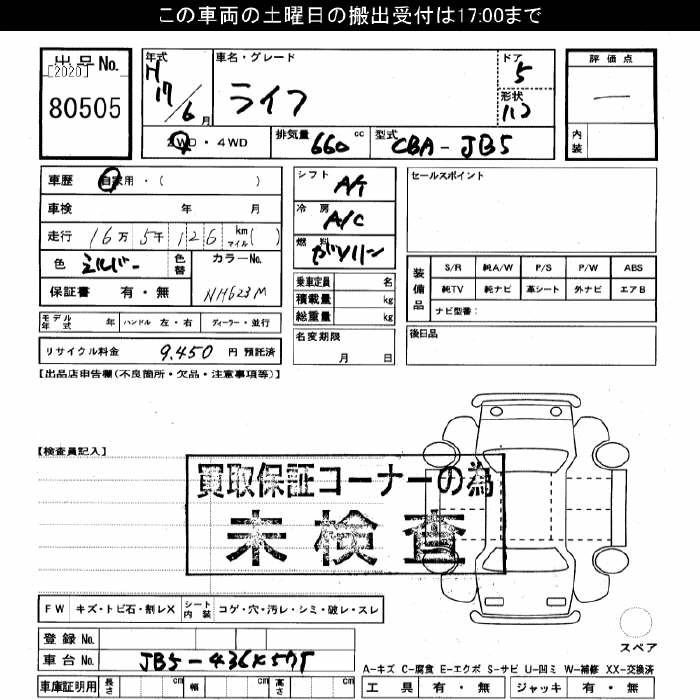 この車両の土曜日の搬出受付は17:00まで
出品No.
[2020]
80505
年式
H
17
6月
車名・グレード
ライフ
ドア
5
形状
ハコ
評価点
内装
2WD・4WD
排気量 660 cc
型式 CBA-JB5
車歴 自家用・( )
車検 年 月
走行 16万 5千 126 km マイル( )
色 シルバー
色替
カラーNo.
NH623M
保証書 有・無
シフト A/T
冷房 A/C
燃料 ガソリン
乗車定員 名
積載量 kg
総重量 kg
名変期限
月 日
セールスポイント
装備品
S/R 純A/W P/S P/W ABS
純TV 純ナビ 革シート 外ナビ エアB
ナビ型番:
後日品
モデル年式 年 ハンドル 左・右 ディーラー・並行
リサイクル料金 9,450 円 預託済
【出品店申告欄(不良箇所・欠品・注意事項等)】
【検査員記入】
買取保証コーナーの為
未検査
FW キズ・トビ石・割レX シート内装 コゲ・穴・汚レ・シミ・破レ・スレ
登録No.
車台No.
車庫証明用 長さ cm 幅 cm 高さ cm
スペア
A-キズ C-腐食 E-エクボ S-サビ U-凹ミ W-補修 XX-交換済
工具 有・無 ジャッキ 有・無